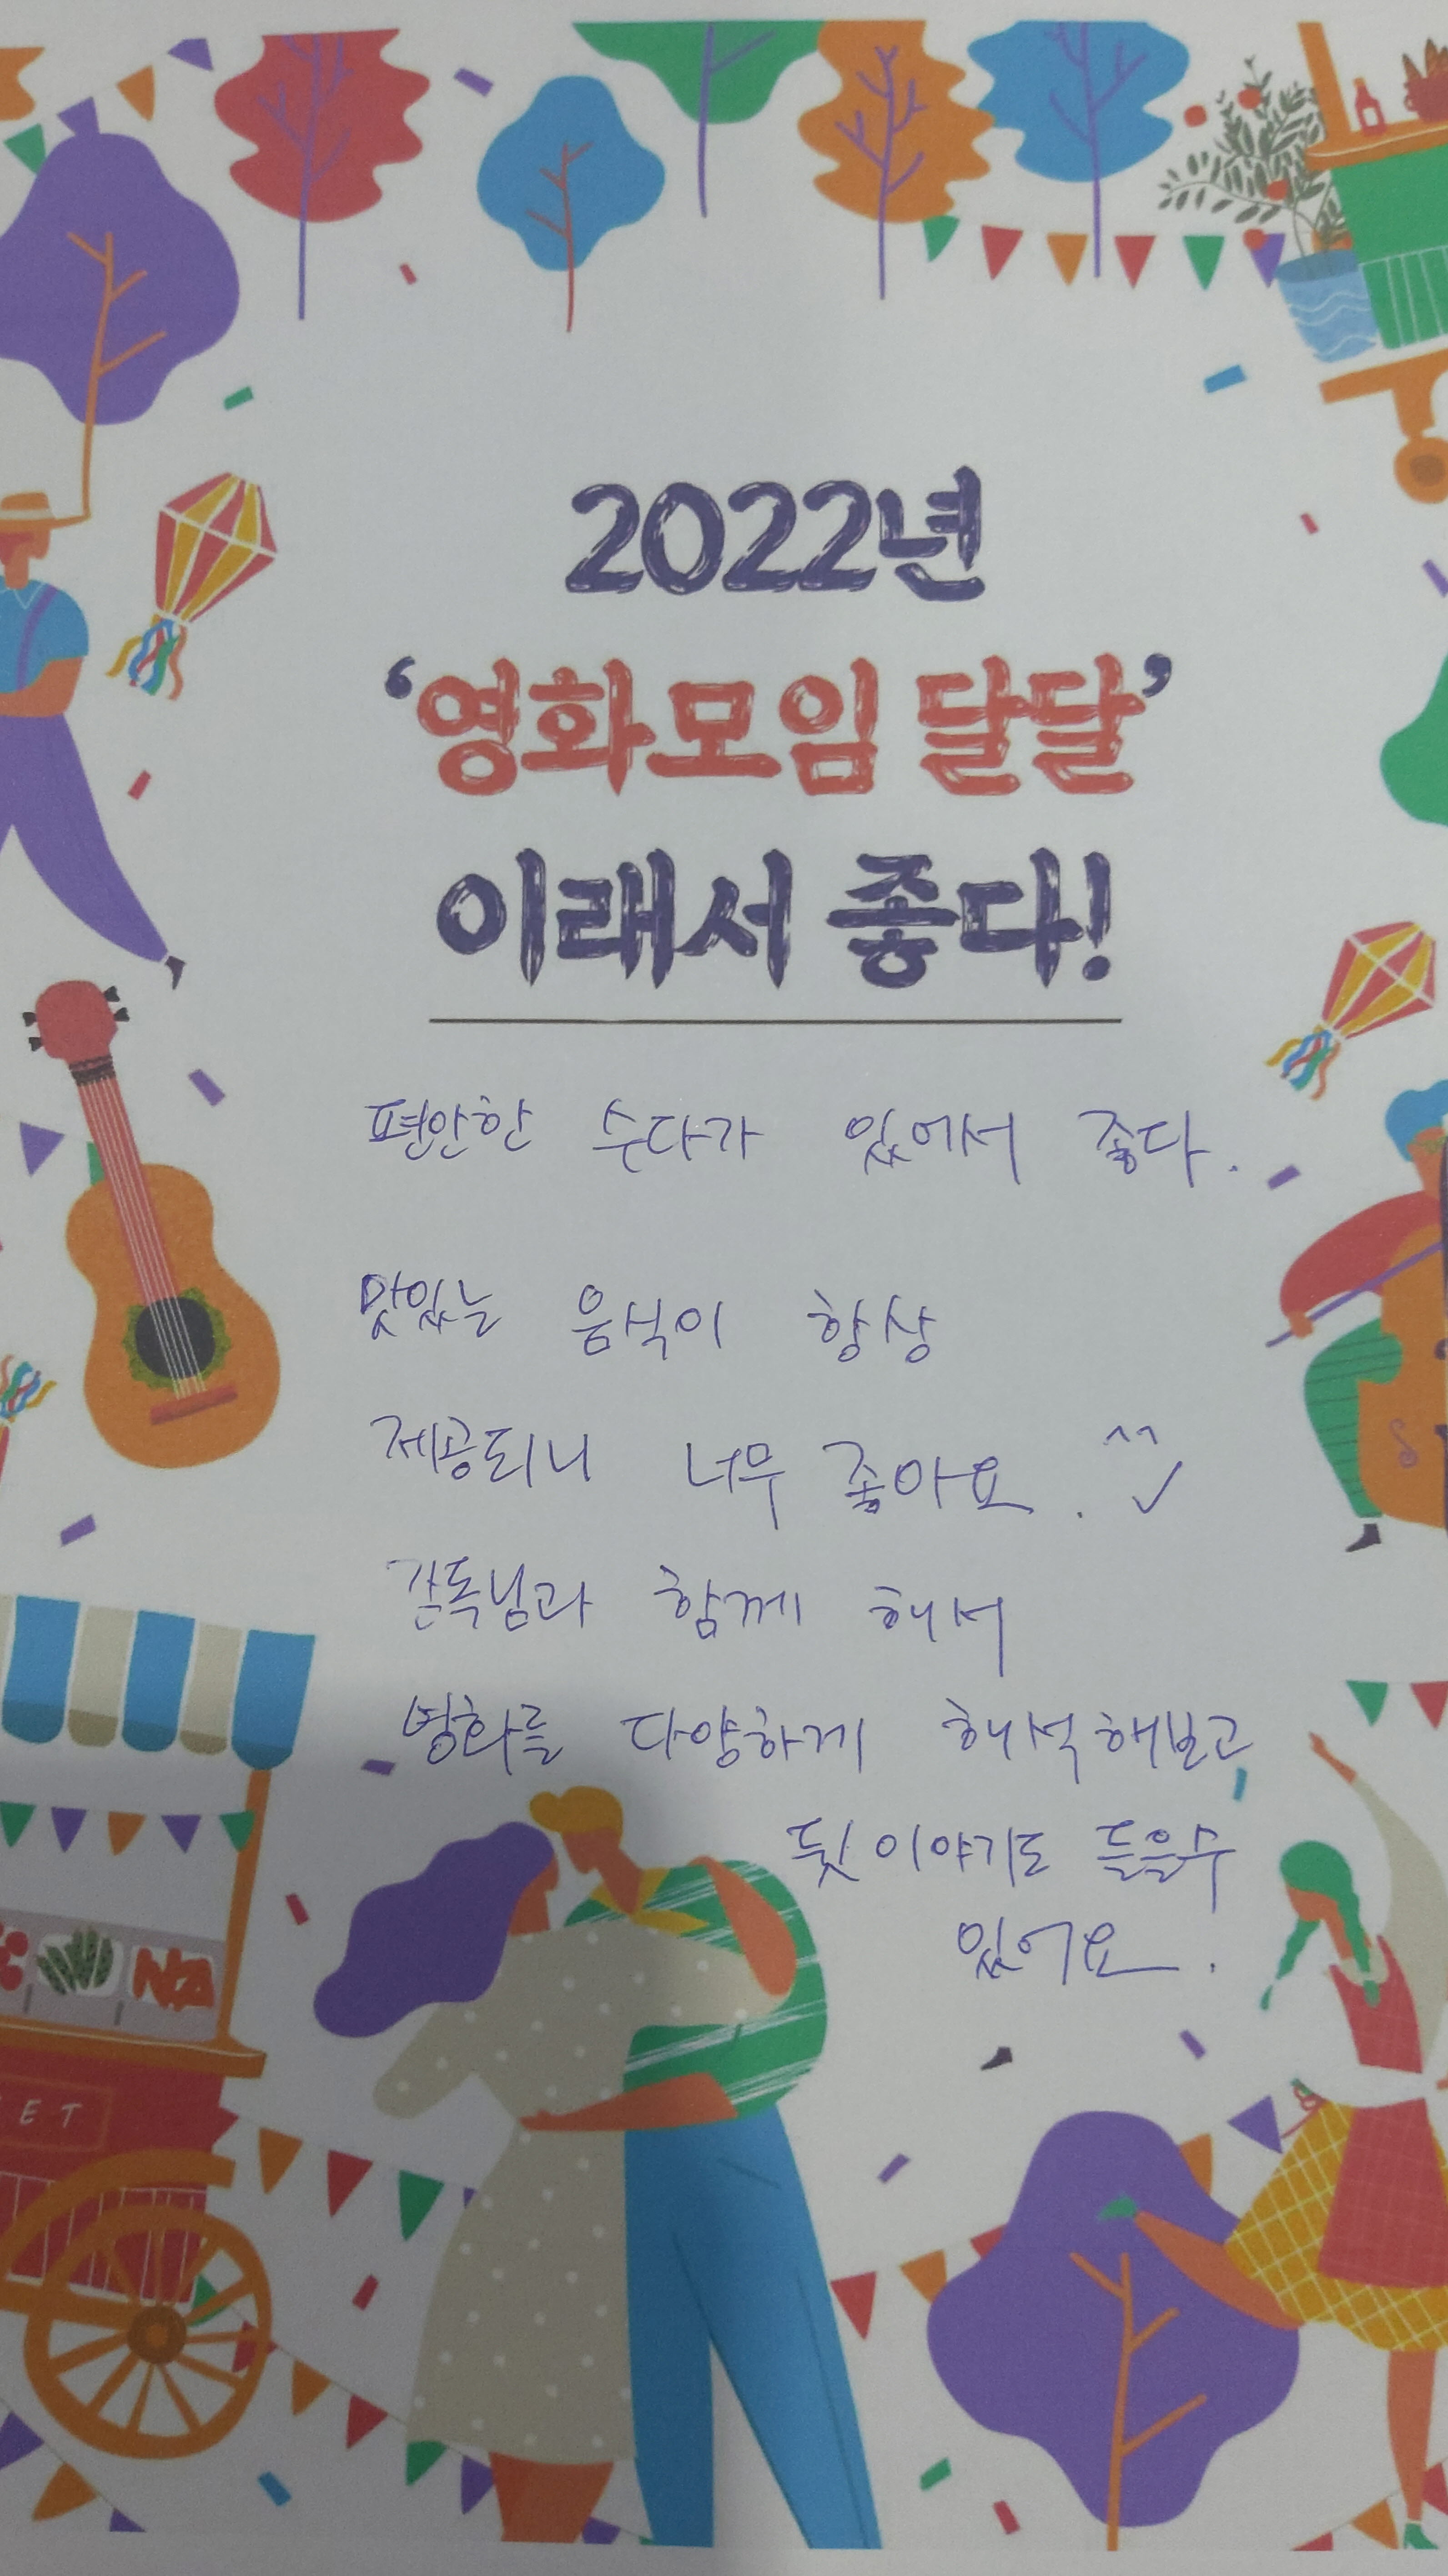 2022년
‘영화모임 달달’
이래서 좋다!
편안한 수다가 있어서 좋다.
맛있는 음식이 항상
제공되니 너무 좋아요. ^^
감독님과 함께 해서
영화를 다양하게 해석해보고
뒷 이야기도 들을수
있어요.
ET